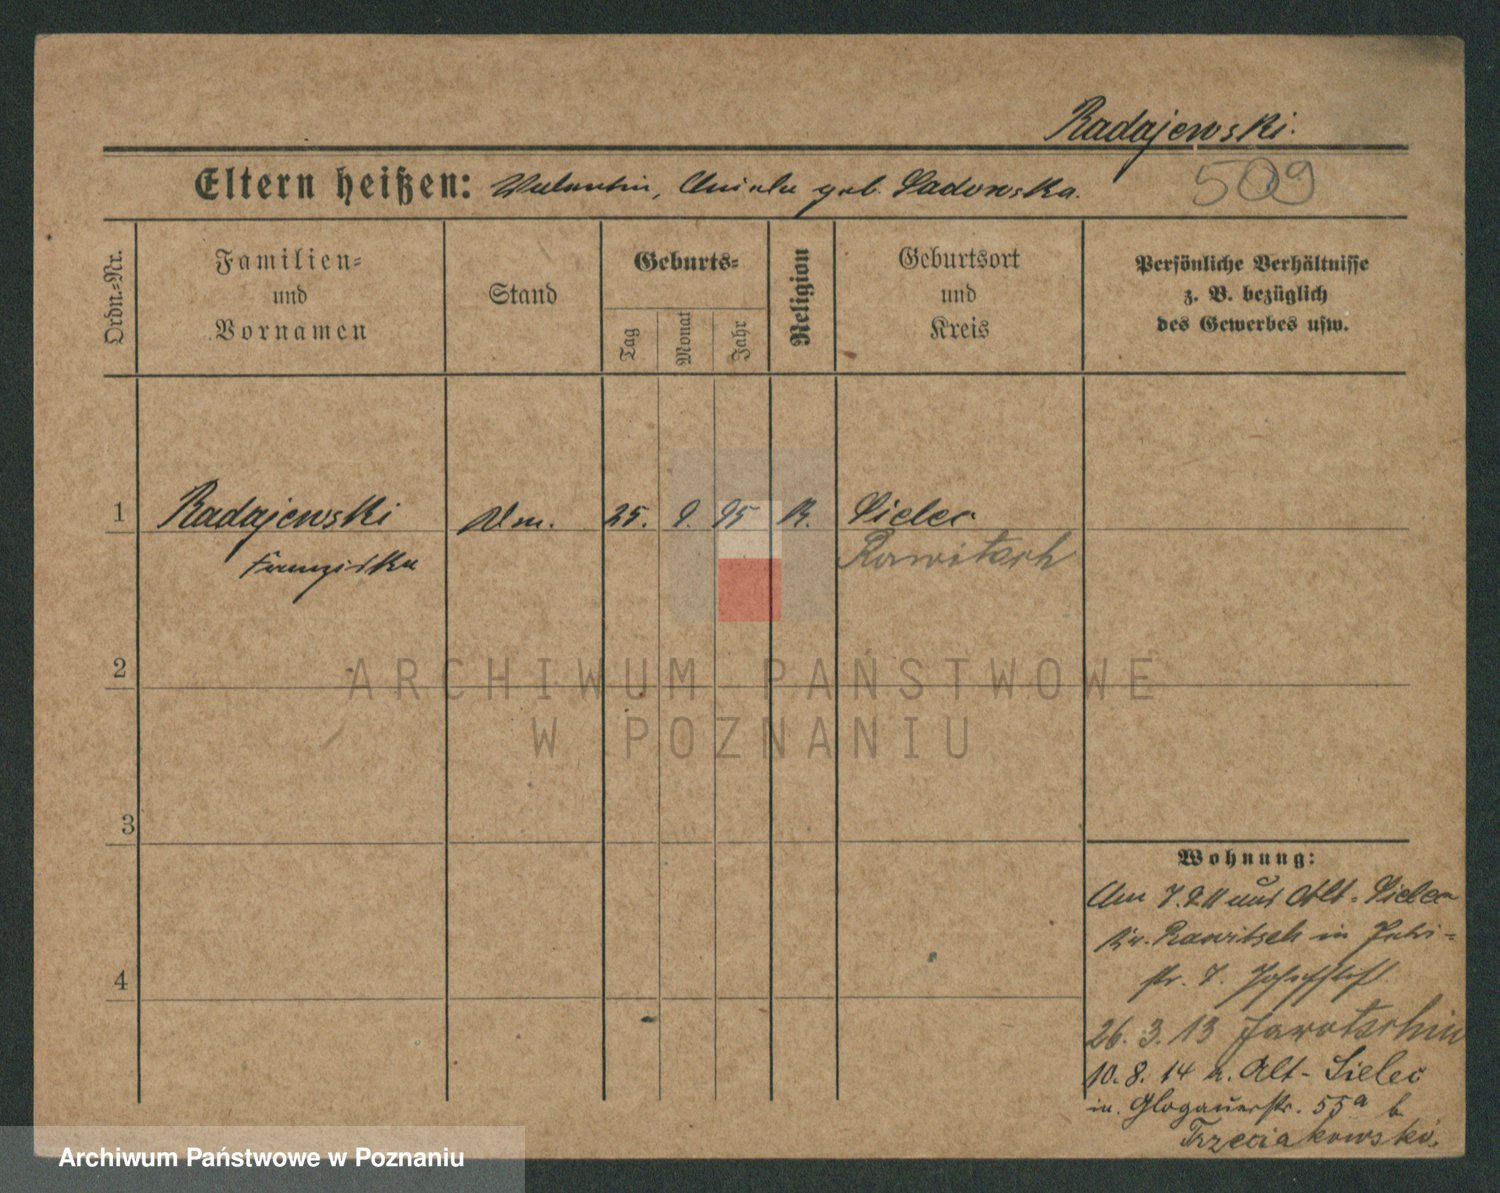 Radajewski.
Eltern heißen: Valentin, Aniela geb. Sadowska.
509
Ordn.-Nr.
Familien-
und
Vornamen
Stand
Geburts-
Tag
Monat
Jahr
Religion
Geburtsort
und
Kreis
Persönliche Verhältnisse
z. B. bezüglich
des Gewerbes usw.
1 Radajewski 25. 9. 95 K. Sielec
Franziska Rawitsch
2
ARCHIWUM PAŃSTWOWE
W POZNANIU
3
Wohnung:
Am 7. 9 11 aus Alt-Sielec
Kr. Rawitsch in
str. 7. Josephstift.
4
26. 3. 13 Jarotschin
10. 8. 14 v. Alt-Sielec
in Glogauerstr. 55a b
Trzeciakowski.
Archiwum Państwowe w Poznaniu